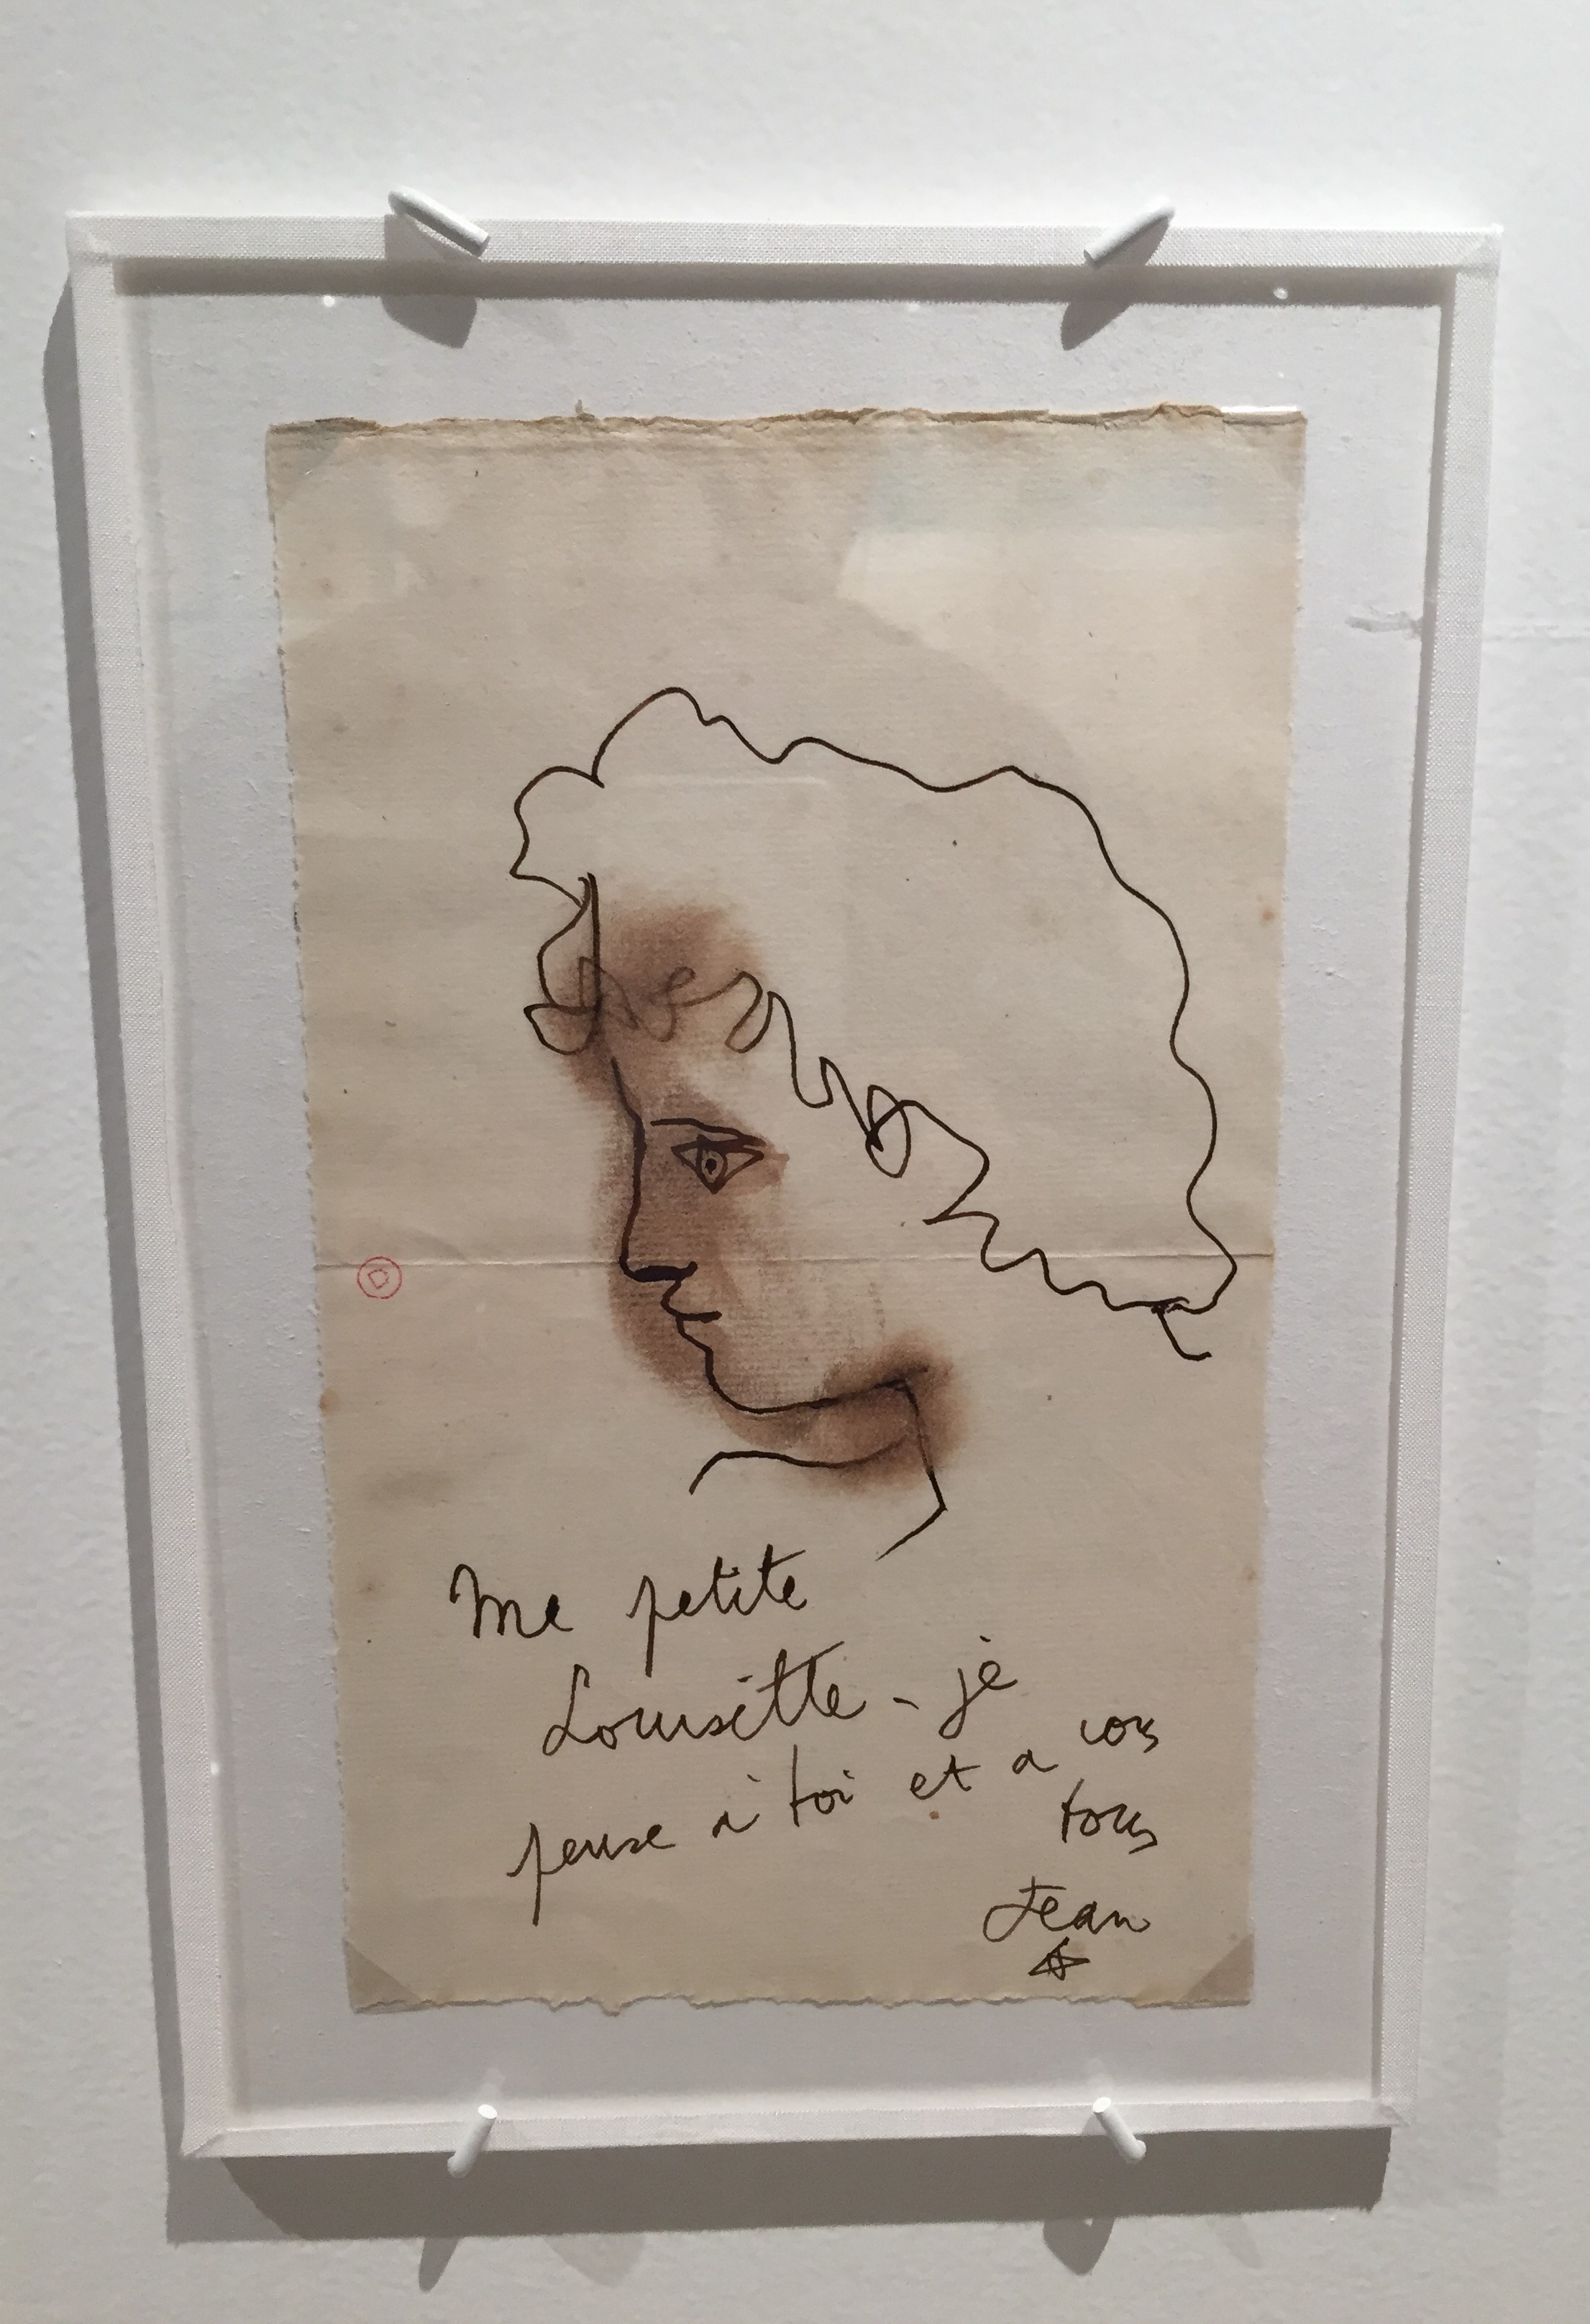 D
Ma petite
Louisette - je
pense à toi et a vous
tous
Jean